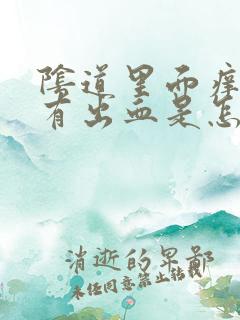 陰道里面痒
有出血是怎
消逝的果鄙
未经同意禁止转载